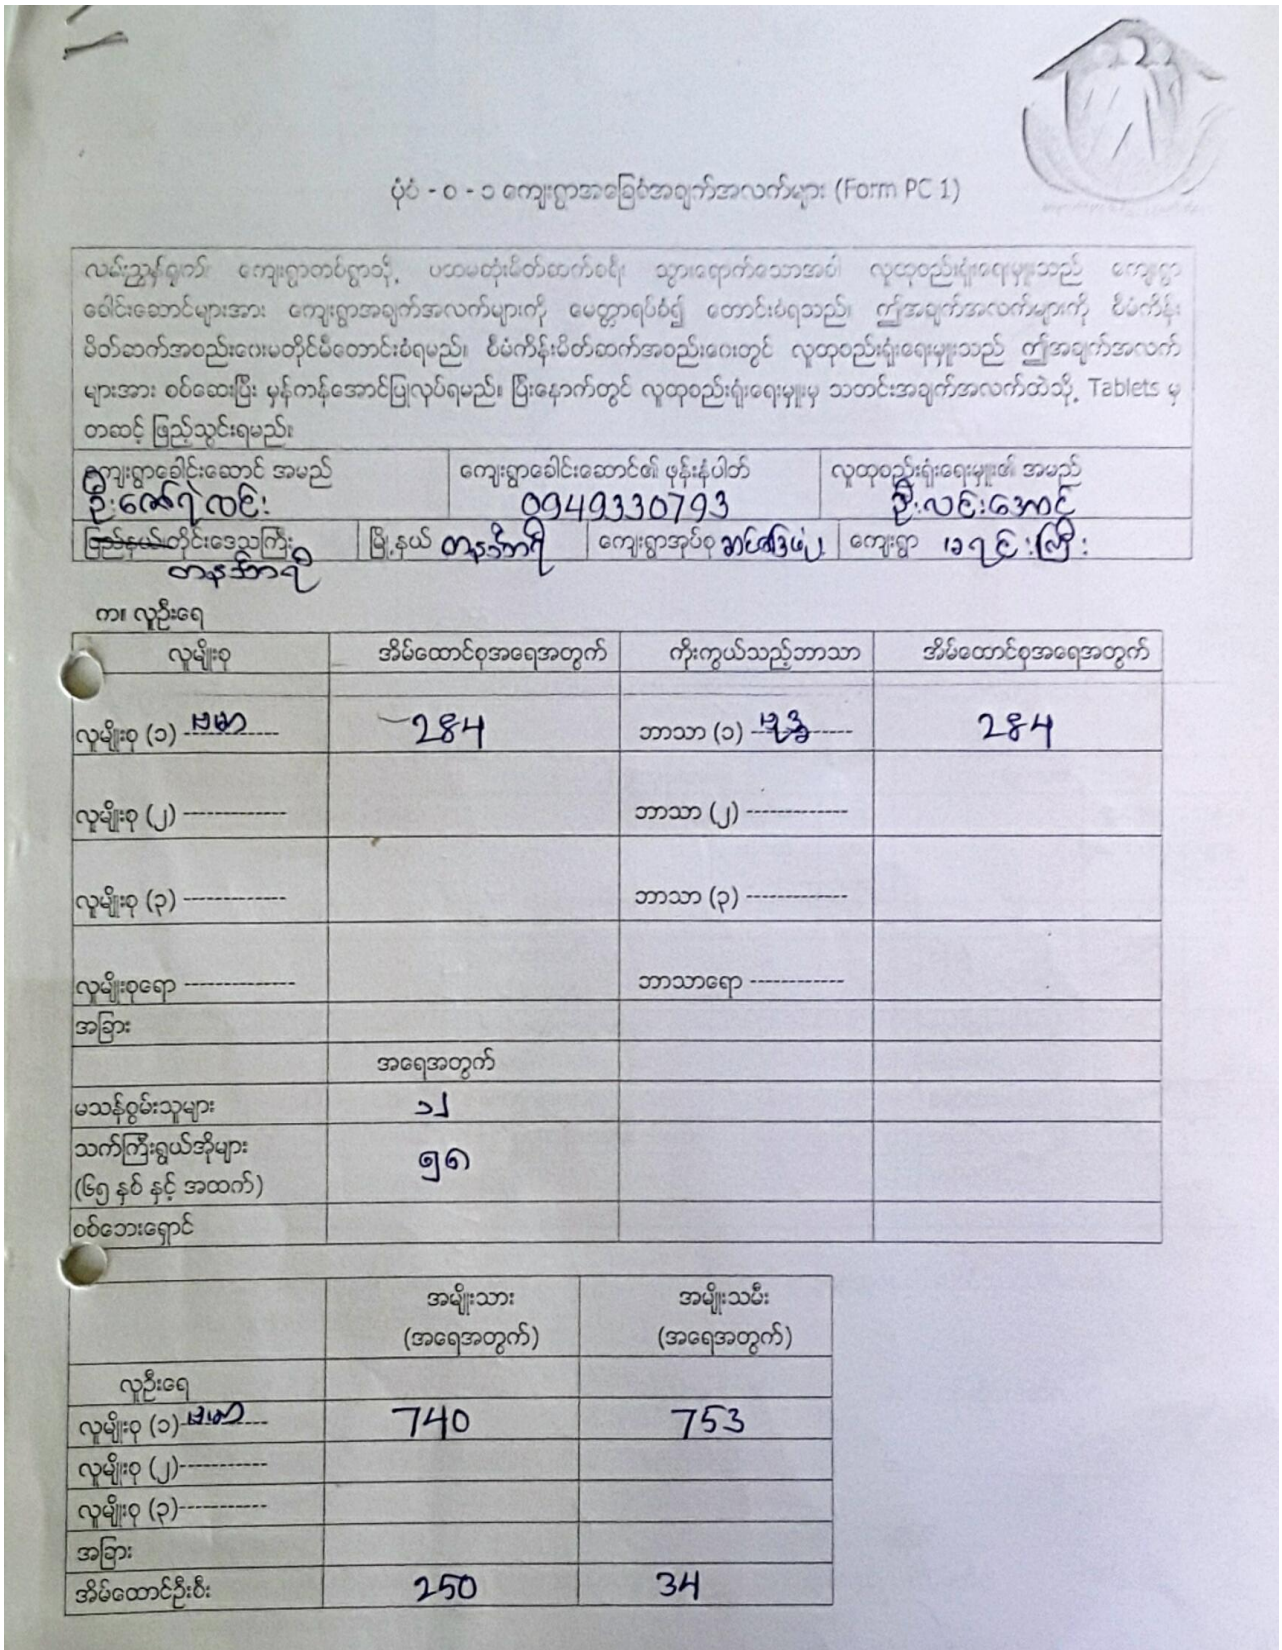 ပုံစံ - ၀ - ၁ ကျေးရွာအခြေခံအချက်အလက်များ (Form PC 1)
လမ်းညွှန်ချက်၊ ကျေးရွာတစ်ရွာသို့ ပထမဆုံးမိတ်ဆက်ခရီး သွားရောက်သောအခါ လူထုစည်းရုံးရေးမှူးသည် ကျေးရွာ
ခေါင်းဆောင်များအား ကျေးရွာအချက်အလက်များကို မေတ္တာရပ်ခံ၍ တောင်းခံရသည်။ ဤအချက်အလက်များကို စီမံကိန်း
မိတ်ဆက်အစည်းဝေးမတိုင်မီတောင်းခံရမည်။ စီမံကိန်းမိတ်ဆက်အစည်းဝေးတွင် လူထုစည်းရုံးရေးမှူးသည် ဤအချက်အလက်
များအား စစ်ဆေးပြီး မှန်ကန်အောင်ပြုလုပ်ရမည်။ ပြီးနောက်တွင် လူထုစည်းရုံးရေးမှူးမှ သတင်းအချက်အလက်ထဲသို့ Tablets မှ
တဆင့် ဖြည့်သွင်းရမည်။
ကျေးရွာခေါင်းဆောင် အမည် ကျေးရွာခေါင်းဆောင်၏ ဖုန်းနံပါတ် လူထုစည်းရုံးရေးမှူး၏ အမည်
ဦးဇော်ရဲလင်း 0949330793 ဦးလင်းအောင်
ပြည်နယ်/တိုင်းဒေသကြီး မြို့နယ် တနင်္သာရီ ကျေးရွာအုပ်စု ကျေးရွာ ခရင်းကြီး
တနင်္သာရီ
က။ လူဦးရေ
လူမျိုးစု အိမ်ထောင်စုအရေအတွက် ကိုးကွယ်သည့်ဘာသာ အိမ်ထောင်စုအရေအတွက်
လူမျိုးစု (၁) ဗမာ 284 ဘာသာ (၁) ဗုဒ္ဓ 284
လူမျိုးစု (၂) ------------- ဘာသာ (၂) -------------
လူမျိုးစု (၃) ------------- ဘာသာ (၃) -------------
လူမျိုးစုရော -------------- ဘာသာရော ------------
အခြား
အရေအတွက်
မသန်စွမ်းသူများ ၁၂
သက်ကြီးရွယ်အိုများ
(၆၅ နှစ် နှင့် အထက်) ၅၈
စစ်ဘေးရှောင်
အမျိုးသား အမျိုးသမီး
(အရေအတွက်) (အရေအတွက်)
လူဦးရေ
လူမျိုးစု (၁) ဗမာ 740 753
လူမျိုးစု (၂)-----------
လူမျိုးစု (၃)-----------
အခြား
အိမ်ထောင်ဦးစီး 250 34